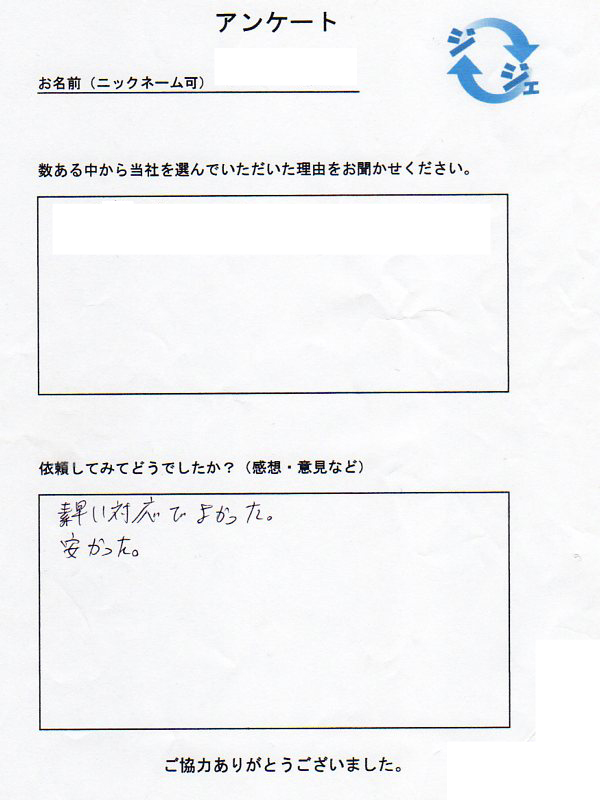 アンケート
ジジェ
お名前（ニックネーム可）
数ある中から当社を選んでいただいた理由をお聞かせください。
依頼してみてどうでしたか？（感想・意見など）
素早い対応でよかった。
安かった。
ご協力ありがとうございました。